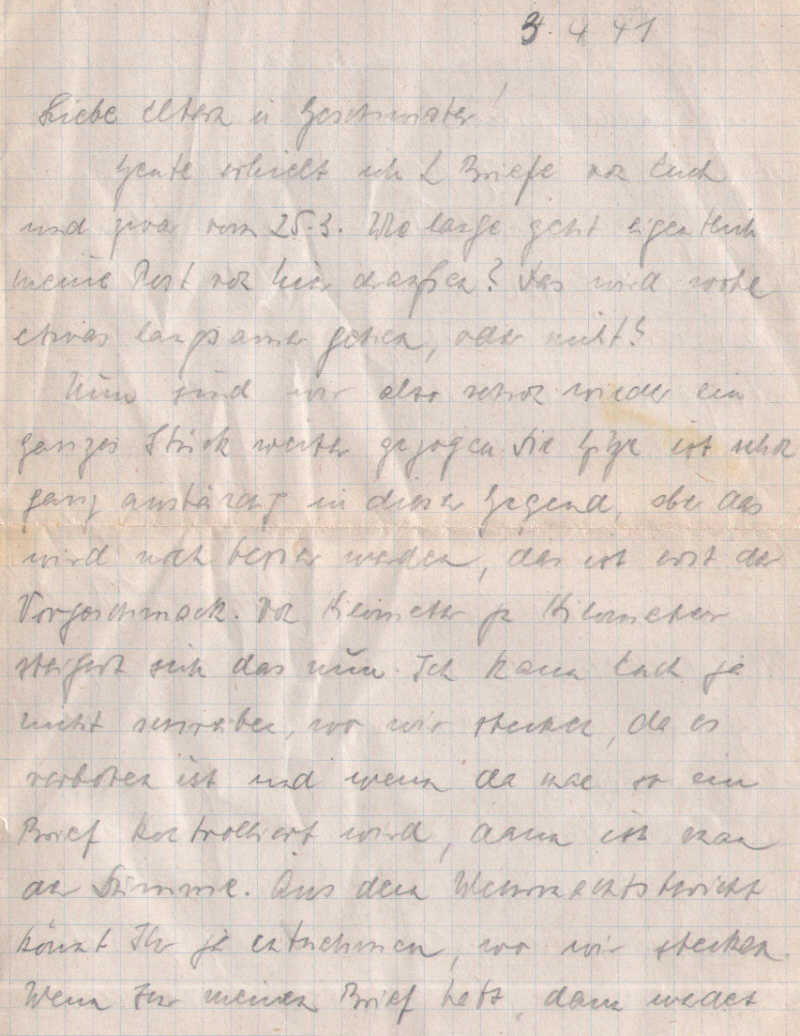 3. 4 41
Liebe Eltern u Geschwister!
Heute erhielt ich 2 Briefe von Euch
und zwar vom 25.3. Wie lange geht eigentlich
meine Post von hier draußen? Das wird wohl
etwas langsamer gehen, oder nicht?
Nun sind wir also schon wieder ein
ganzes Stück weiter gezogen. Die Hitze ist schon
ganz anständig in dieser Gegend, aber das
wird noch besser werden, das ist erst der
Vorgeschmack. Von Kilometer zu Kilometer
steigert sich das nun. Ich kann Euch ja
nicht schreiben, wo wir stecken, da es
verboten ist und wenn da mal so ein
Brief kontrolliert wird, dann ist man
der Dumme. Aus dem Wehrmachtsbericht
könnt Ihr ja entnehmen, wo wir stecken.
Wenn Ihr meinen Brief habt, dann werdet